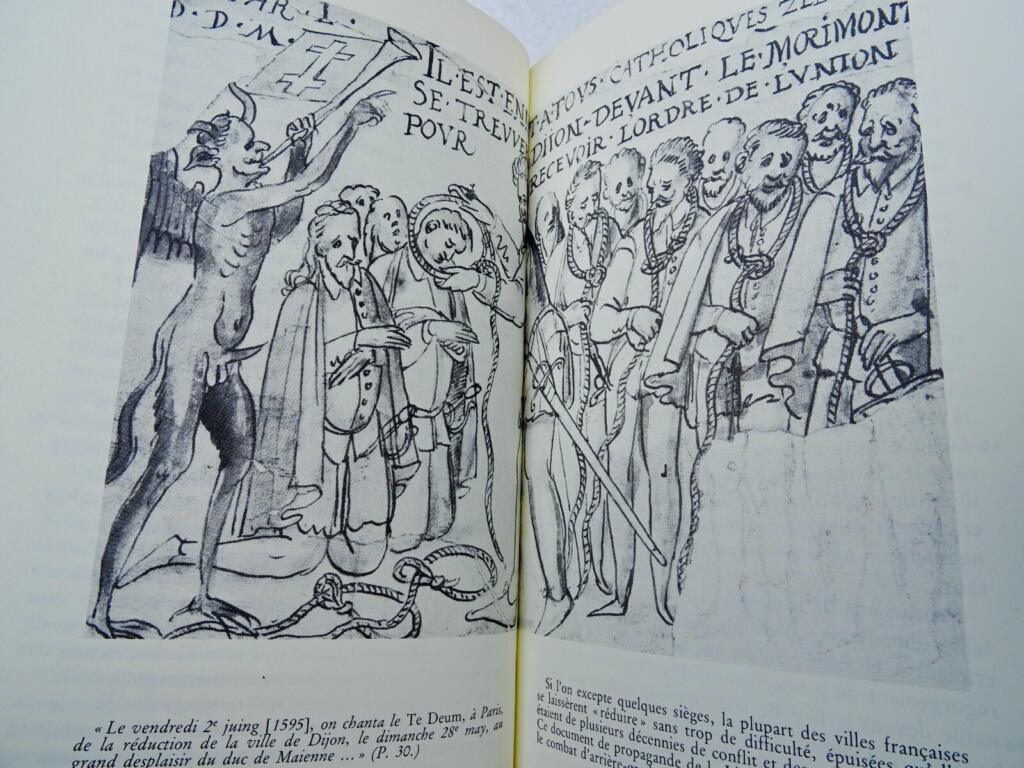 PAR · L ·
D · D · M ·
IL · EST · EN
SE · TREVVE
POVR
T · A · TOVS · CATHOLIQVES
DIION · DEVANT · LE · MORIMONT
RECEVOIR · LORDRE · DE · L'VNION
« Le vendredi 2e juing [1595], on chanta le Te Deum, à Paris,
de la réduction de la ville de Dijon, le dimanche 28e may, au
grand desplaisir du duc de Maienne ... » (P. 30.)
Si l'on excepte quelques sièges, la plupart des villes françaises
se laissèrent « réduire » sans trop de difficulté, épuisées
étaient de plusieurs décennies de conflit et
Ce document de propagande de la
le combat